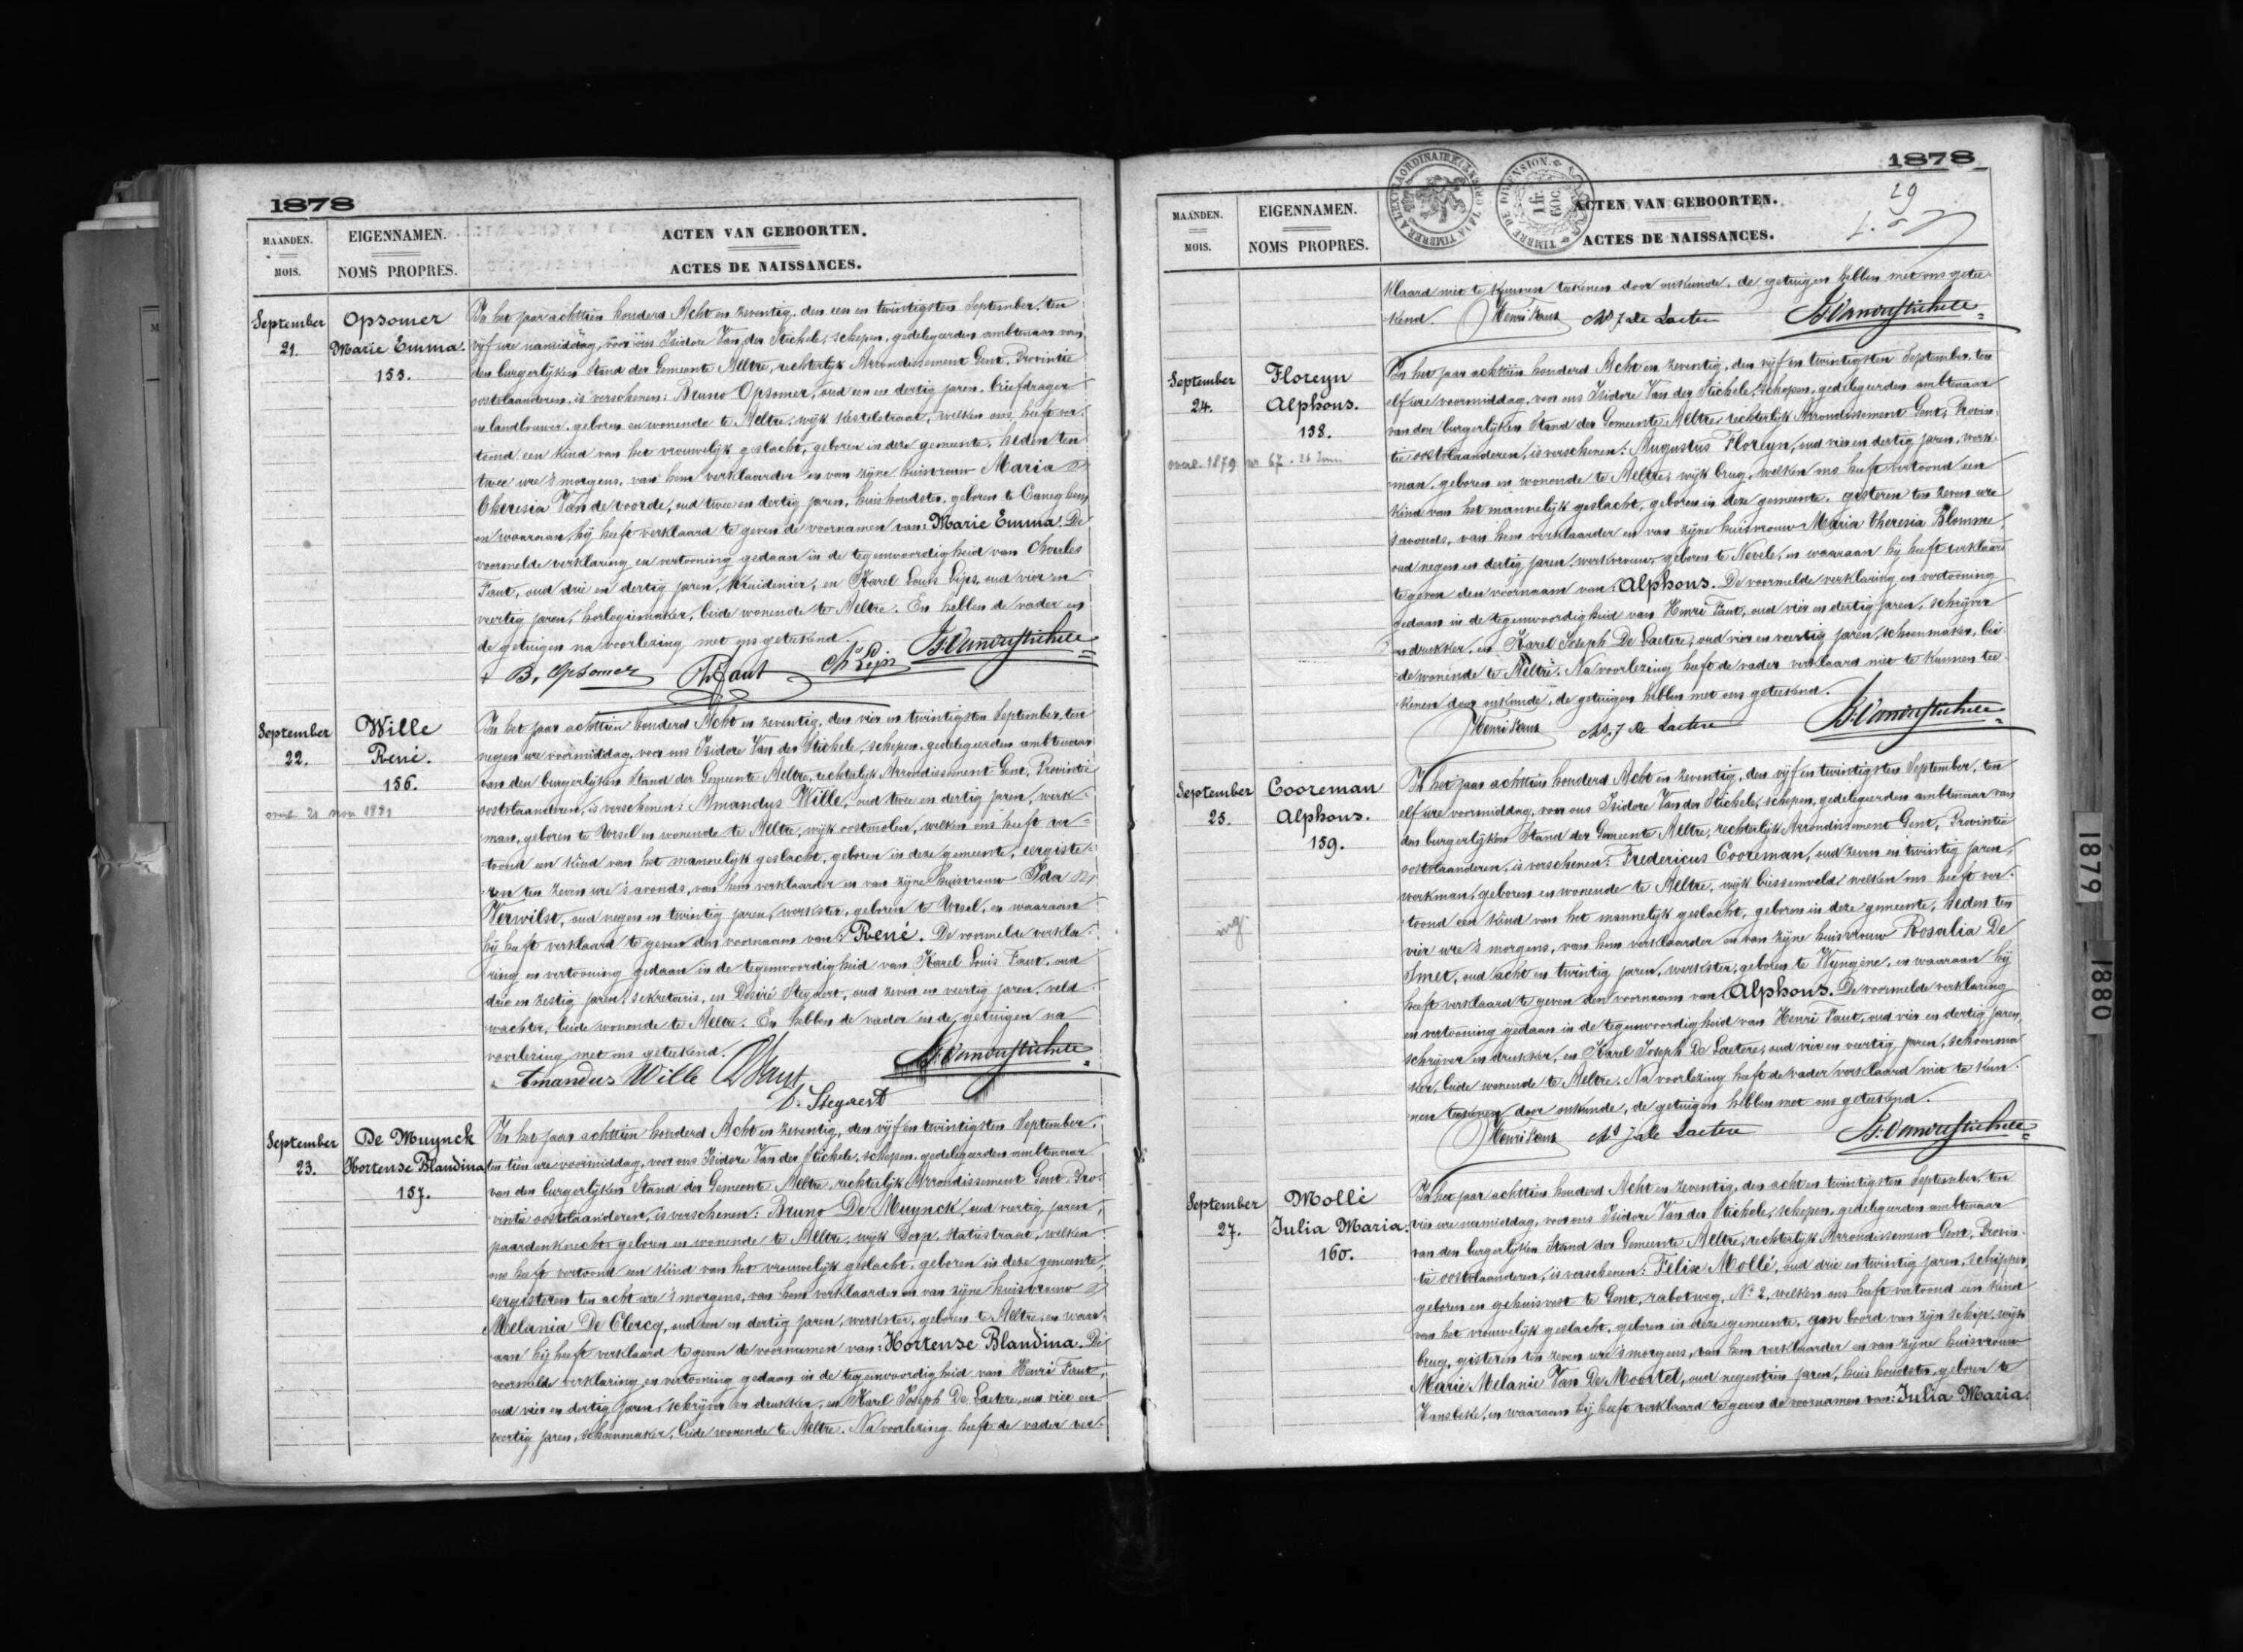 1878
MAANDEN.
MOIS.
EIGENNAMEN.
NOMS PROPRES.
ACTEN VAN GEBOORTEN.
ACTES DE NAISSANCES.
September
21.
Opsomer
Marie Emma.
155.
In het jaar achttien honderd Acht en zeventig, den een en twintigsten September, ten
vijf ure namiddag, voor ons Isidore Van der Stichele, schepen, gedelegeerden ambtenaar van
den burgerlijken Stand der Gemeente Aeltre, rechterlijk Arrondissement Gent, Provintie
oostvlaanderen, is verschenen: Bruno Opsomer, oud een en dertig jaren, briefdrager
en landbouwer, geboren en wonende te Aeltre, wijk kestelstraat, welken ons heeft ver-
toond een kind van het vrouwelijk geslacht, geboren in deze gemeente, heden ten
twee ure 's morgens, van hem verklaarder en van zijne huisvrouw Maria
Theresia Van de voorde, oud twee en dertig jaren, huishoudster, geboren te Caneghem,
en waaraan hij heeft verklaard te geven de voornamen van: Marie Emma. De
voormelde verklaring en vertooning gedaan in de tegenwoordigheid van Charles
Faut, oud drie en dertig jaren, kruidenier, en Karel Louis Lips, oud vier en
veertig jaren, horlogiemaker, beide wonende te Aeltre. En hebben de vader en
de getuigen na voorlezing met ons geteekend.
B. Opsomer Ch Faut Ch Ls Lips Is. Vanderstichele
September
22.
Wille
René.
156.
overl. 21 nov 1891
In het jaar achttien honderd Acht en zeventig, den vier en twintigsten September, ten
negen ure voormiddag, voor ons Isidore Van der Stichele, schepen, gedelegeerden ambtenaar
van den burgerlijken Stand der Gemeente Aeltre, rechterlijk Arrondissement Gent, Provintie
oostvlaanderen, is verschenen: Amandus Wille, oud twee en dertig jaren, werk-
man, geboren te Ursel en wonende te Aeltre, wijk oostmolen, welken ons heeft ver-
toond een kind van het mannelijk geslacht, geboren in deze gemeente, eergiste-
ren ten zeven ure 's avonds, van hem verklaarder en van zijne huisvrouw Ida
Verwilst, oud negen en twintig jaren, werkster, geboren te Ursel, en waaraan
hij heeft verklaard te geven den voornaam van: René. De voormelde verkla-
ring en vertooning gedaan in de tegenwoordigheid van Karel Louis Faut, oud
drie en zestig jaren, sekretaris, en Désiré Stegaert, oud zeven en veertig jaren, veld
wachter, beide wonende te Aeltre. En hebben de vader en de getuigen na
voorlezing met ons geteekend.
Amandus Wille Faut Is. Vanderstichele
D. Stegaert
September
23.
De Muynck
Hortense Blandina
157.
In het jaar achttien honderd Acht en zeventig, den vijf en twintigsten September,
ten tien ure voormiddag, voor ons Isidore Van der Stichele, schepen, gedelegeerden ambtenaar
van den burgerlijken Stand der Gemeente Aeltre, rechterlijk Arrondissement Gent, Pro-
vintie oostvlaanderen, is verschenen: Bruno De Muynck, oud veertig jaren,
paardenknecht, geboren en wonende te Aeltre, wijk Dorp, statiestraat, welken
ons heeft vertoond een kind van het vrouwelijk geslacht, geboren in deze gemeente,
eergisteren ten acht ure 's morgens, van hem verklaarder en van zijne huisvrouw
Melania De Clercq, oud een en dertig jaren, werkster, geboren te Aeltre, en waar-
aan hij heeft verklaard te geven de voornamen van: Hortense Blandina. De
voormelde verklaring en vertooning gedaan in de tegenwoordigheid van Henri Faut,
oud vier en dertig jaren, schrijver en drukker, en Karel Joseph De Laetere, oud vier en
veertig jaren, schoenmaker, beide wonende te Aeltre. Na voorlezing heeft de vader ver-
1878
29
MAANDEN.
MOIS.
EIGENNAMEN.
NOMS PROPRES.
TIMBRE DE DIMENSION
1 fr. 60c
ACTEN VAN GEBOORTEN.
ACTES DE NAISSANCES.
klaard niet te kunnen teekenen door onkunde, de getuigen hebben met ons getee-
kend. Henri Faut Ch. J. De Laetere Is. Vanderstichele
September
24.
Floreyn
Alphons.
158.
overl. 1879 nr 67. 26 Juni
In het jaar achttien honderd Acht en zeventig, den vijf en twintigsten September, ten
elf ure voormiddag, voor ons Isidore Van der Stichele, schepen, gedelegeerden ambtenaar
van den burgerlijken Stand der Gemeente Aeltre, rechterlijk Arrondissement Gent, Provin-
tie oostvlaanderen, is verschenen: Augustus Floreyn, oud vier en dertig jaren, werk-
man, geboren en wonende te Aeltre, wijk brug, welken ons heeft vertoond een
kind van het mannelijk geslacht, geboren in deze gemeente, gisteren ten zeven ure
's avonds, van hem verklaarder en van zijne huisvrouw Maria Theresia Blomme,
oud negen en dertig jaren, werkvrouw, geboren te Nevele, en waaraan hij heeft verklaard
te geven den voornaam van: Alphons. De voormelde verklaring en vertooning
gedaan in de tegenwoordigheid van Henri Faut, oud vier en dertig jaren, schrijver
en drukker, en Karel Joseph De Laetere, oud vier en veertig jaren, schoenmaker, bei-
de wonende te Aeltre. Na voorlezing heeft de vader verklaard niet te kunnen tee-
kenen door onkunde, de getuigen hebben met ons geteekend.
Henri Faut Ch. J. De Laetere Is. Vanderstichele
September
25.
Cooreman
Alphons.
159.
In het jaar achttien honderd Acht en zeventig, den vijf en twintigsten September, ten
elf ure voormiddag, voor ons Isidore Van der Stichele, schepen, gedelegeerden ambtenaar van
den burgerlijken Stand der Gemeente Aeltre, rechterlijk Arrondissement Gent, Provintie
oostvlaanderen, is verschenen: Fredericus Cooreman, oud zeven en twintig jaren,
werkman, geboren en wonende te Aeltre, wijk biessemveld, welken ons heeft ver-
toond een kind van het mannelijk geslacht, geboren in deze gemeente, heden ten
vier ure 's morgens, van hem verklaarder en van zijne huisvrouw Rosalia De
Smet, oud acht en twintig jaren, werkster, geboren te Wyngene, en waaraan hij
heeft verklaard te geven den voornaam van: Alphons. De voormelde verklaring
en vertooning gedaan in de tegenwoordigheid van Henri Faut, oud vier en dertig jaren,
schrijver en drukker, en Karel Joseph De Laetere, oud vier en veertig jaren, schoenma
ker, beide wonende te Aeltre. Na voorlezing heeft de vader verklaard niet te kun-
nen teekenen door onkunde, de getuigen hebben met ons geteekend.
Henri Faut Ch. J. De Laetere Is. Vanderstichele
September
27.
Mollé
Julia Maria.
160.
In het jaar achttien honderd Acht en zeventig, den acht en twintigsten September, ten
vier ure namiddag, voor ons Isidore Van der Stichele, schepen, gedelegeerden ambtenaar
van den burgerlijken Stand der Gemeente Aeltre, rechterlijk Arrondissement Gent, Provin-
tie oostvlaanderen, is verschenen: Félix Mollé, oud drie en twintig jaren, schipper,
geboren en gehuisvest te Gent, rabotweg, No 2, welken ons heeft vertoond een kind
van het vrouwelijk geslacht, geboren in deze gemeente, aan boord van zijn schip, wijk
brug, gisteren ten zeven ure 's morgens, van hem verklaarder en van zijne huisvrouw
Marie Melanie Van De Moortel, oud negentien jaren, huishoudster, geboren te
Hansbeke, en waaraan hij heeft verklaard te geven de voornamen van: Julia Maria.
1879
1880